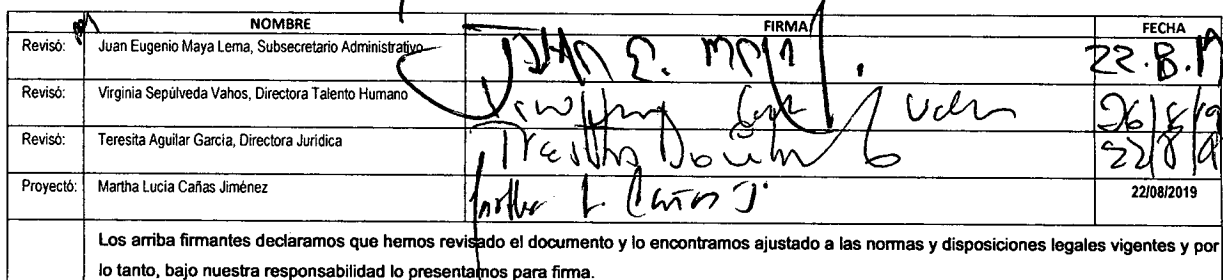 NOMBRE FIRMA FECHA
Revisó: Juan Eugenio Maya Lema, Subsecretario Administrativo 22.8.19
Revisó: Virginia Sepúlveda Vahos, Directora Talento Humano 26/8/19
Revisó: Teresita Aguilar Garcia, Directora Jurídica 22/8/19
Proyectó: Martha Lucia Cañas Jiménez Martha L. Cañas J. 22/08/2019
Los arriba firmantes declaramos que hemos revisado el documento y lo encontramos ajustado a las normas y disposiciones legales vigentes y por
lo tanto, bajo nuestra responsabilidad lo presentamos para firma.